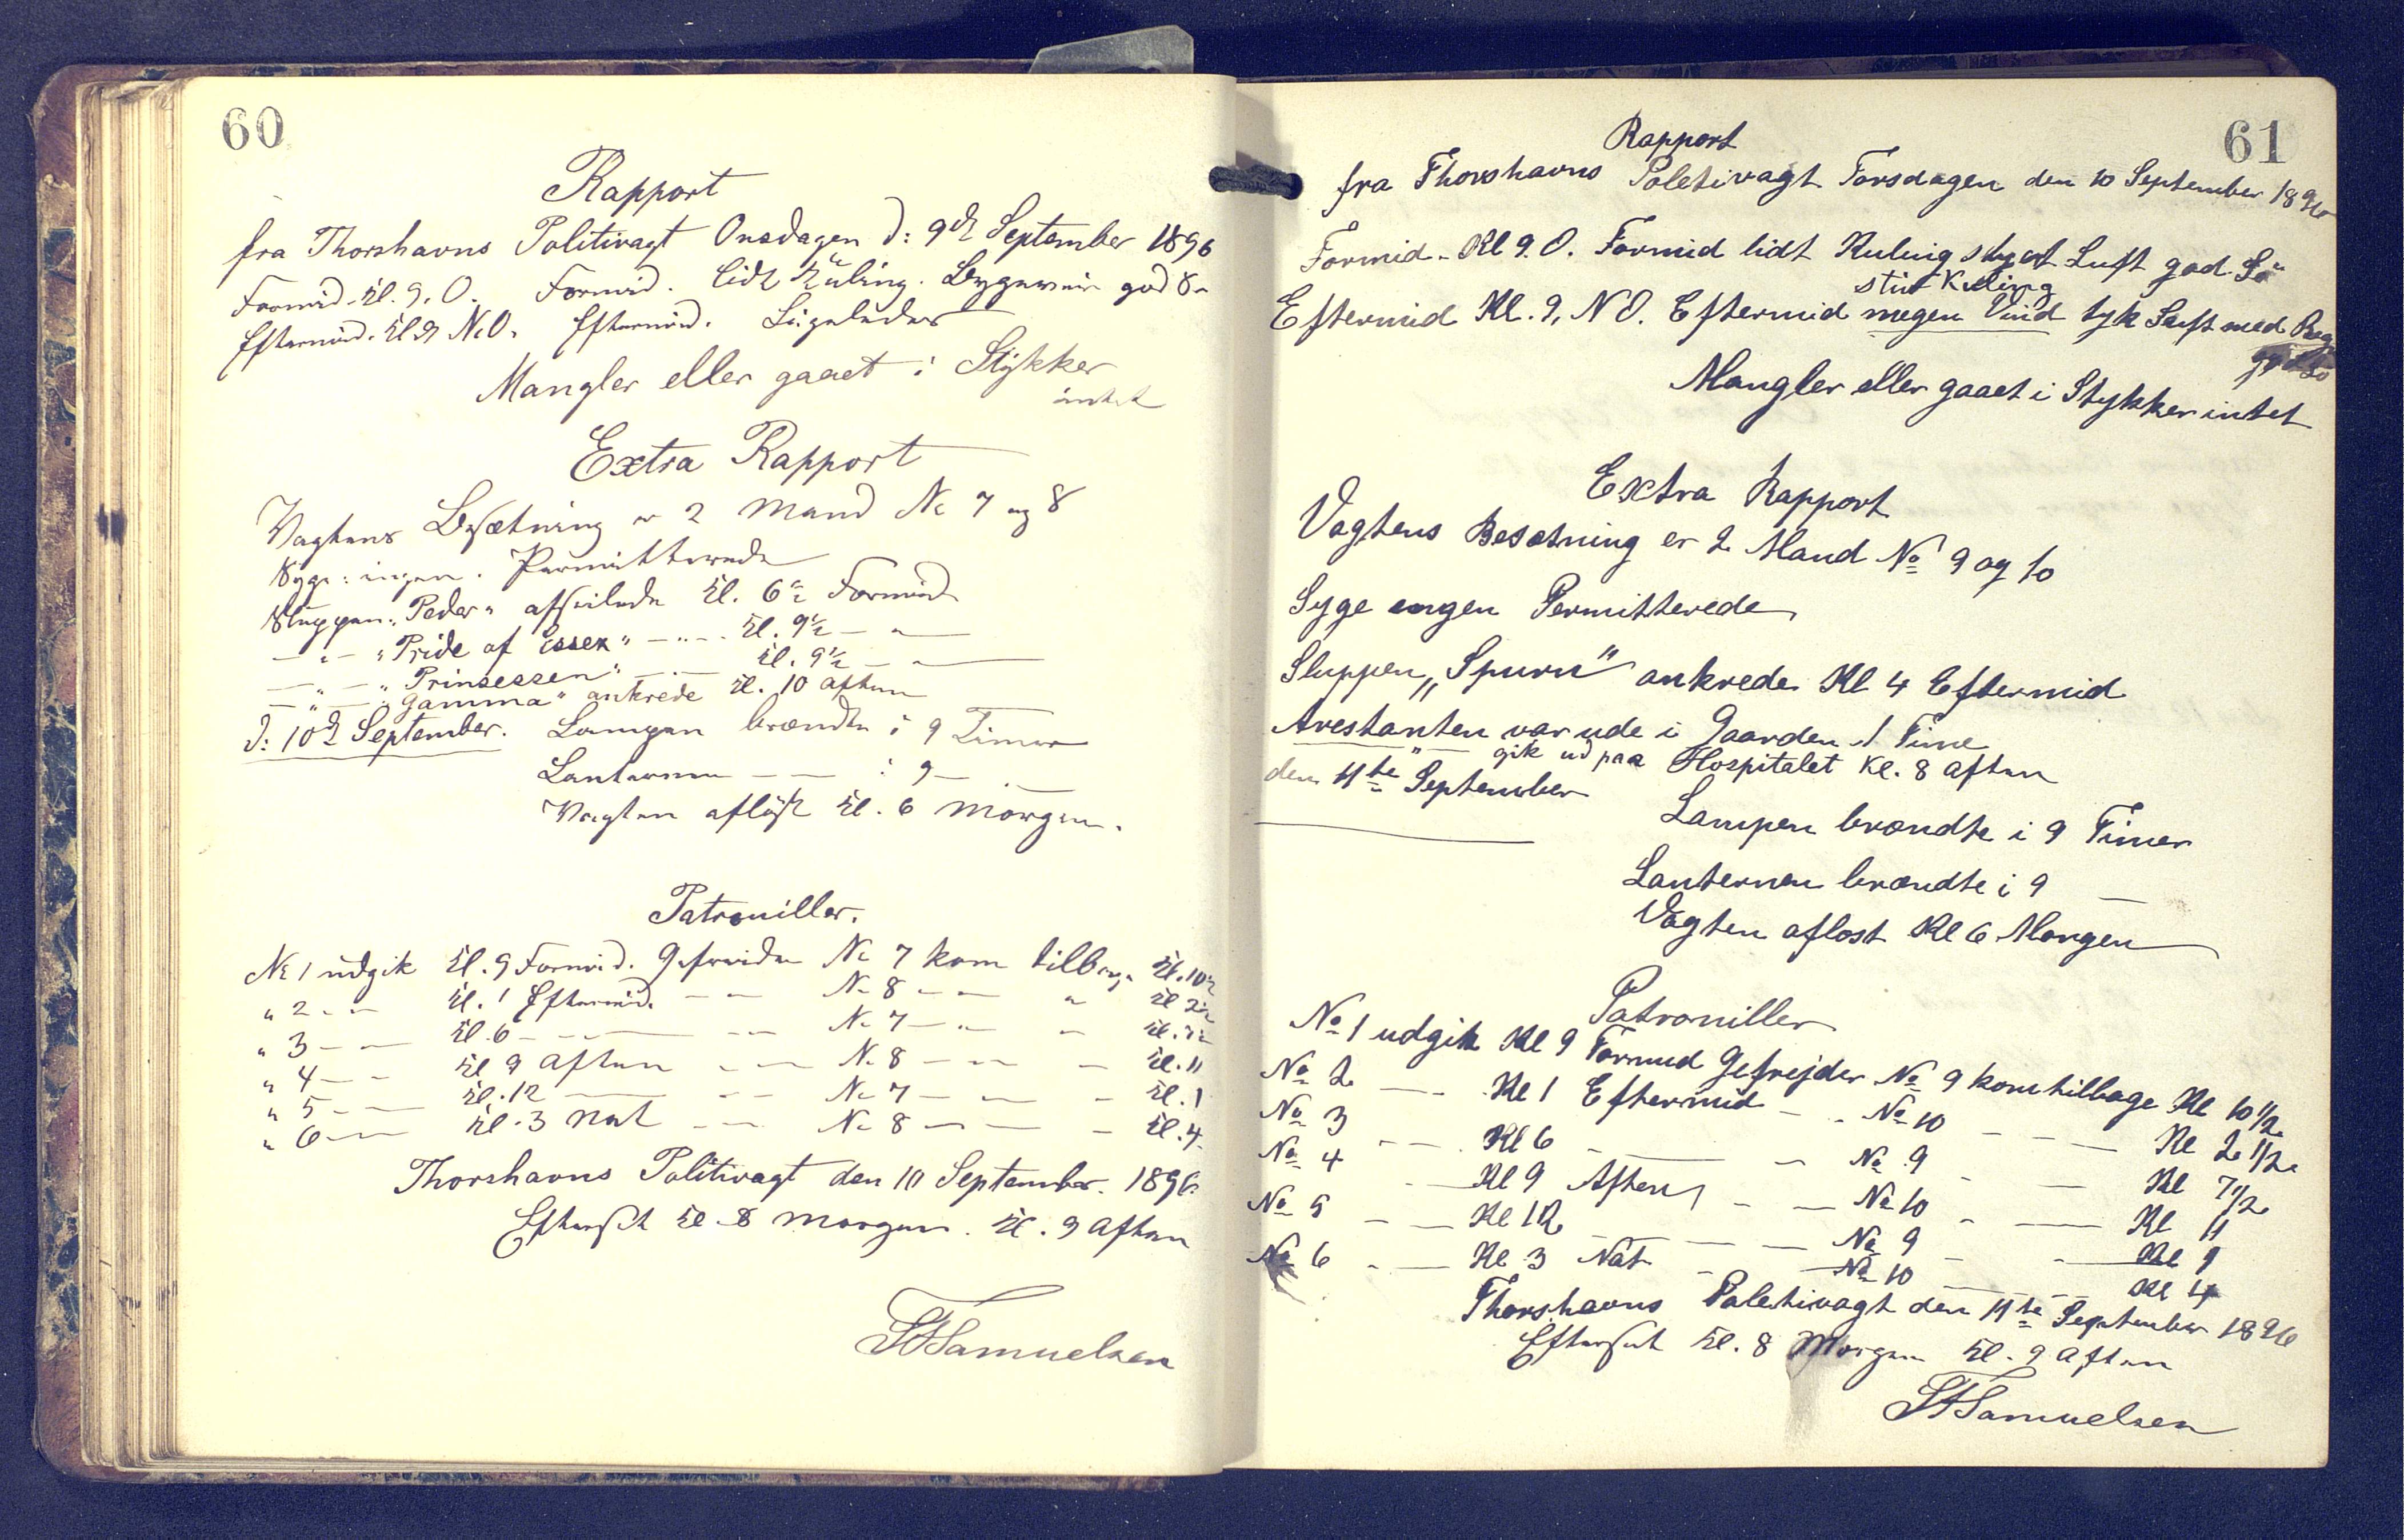 60
Rapport
fra Thorshavns Politivagt Onsdagen d: 9de September 1896
Formid. Kl. 9. O. Formid. lidt Kuling. Bygeveir god Sø
Eftermid. Kl. 9 N.O. Eftermid. Ligeledes
Mangler eller gaaet i Stykker
intet
Extra Rapport
Vagtens Besætning er 2 Mand No 7 og 8
Syge: ingen. Permitterede
Sluppen "Peder" afseilede Kl. 6½ Formid
— " — "Pride of Essex" — " — Kl. 9½ — " —
— " — "Prinsessen" — " — Kl. 9½ — " —
— " — "Gamma" ankrede Kl. 10 Aften
d: 10de September. Lampen brændte i 9 Timer
Lanternen — — i 9 —
Vagten afløst Kl. 6 Morgen.
Patrouiller.
No 1 udgik Kl. 9 Formid. Gefreider No 7 kom tilbage Kl. 10½
" 2 - - Kl. 1 Eftermid. - - No 8 - - " Kl 2½
" 3 - - Kl. 6 - - - - No 7 - - - Kl. 7½
" 4 - - Kl 9 Aften - - No 8 - - - Kl. 11
" 5 - - Kl. 12 - - - No 7 - - - Kl. 1
" 6 - - Kl. 3 Nat - - No 8 - - - Kl. 4
Thorshavns Politivagt den 10 September. 1896
Efterset Kl. 8 Morgen. Kl. 9 Aften
Samuelsen
61
Rapport
fra Thorshavns Poletivagt Torsdagen den 10 September 1896
Formid - Kl 9. O. Formid lidt Kuling skyet Luft god Sø
stiv Kuling
Eftermid Kl. 9, N O. Eftermid megen Vind tyk Luft med Reg
god Sø
Mangler eller gaaet i Stykker intet
Extra Rapport
Vagtens Besætning er 2 Mand No 9 og 10
Syge engen Permitterede
Sluppen „Spurn" ankrede Kl 4 Eftermid
Arestanten var ude i Gaarden 1 Time
— " — gik ud paa Hospitalet Kl. 8 Aften
den 11te September
Lampen brændte i 9 Timer
Lanternen brændte i 9 —
Vagten aflost Kl 6 Morgen
Patrouiller
No 1 udgik Kl 9 Formid Gefrejder No 9 kom tilbage Kl 10 1/2
No 2 - - Kl 1 Eftermid - - No 10 - - - Kl 2 1/2
No 3 - - Kl 6 - - - No 9 - - Kl 7 1/2
No 4 - Kl 9 Aften - - No 10 - - Kl 11
No 5 - - Kl 12 - - - No 9 - - Kl 1
No 6 - - Kl 3 Nat - - No 10 - - Kl 4
Thorshavns Poletivagt den 11te September 1896
Efterset Kl. 8 Morgen Kl. 9 Aften
Samuelsen